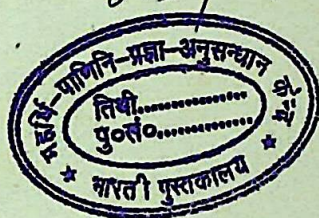 महर्षि-पाणिनि-प्रज्ञा-अनुसन्धान केन्द्र
तिथी................
पु०सं०................
भारती पुस्तकालय